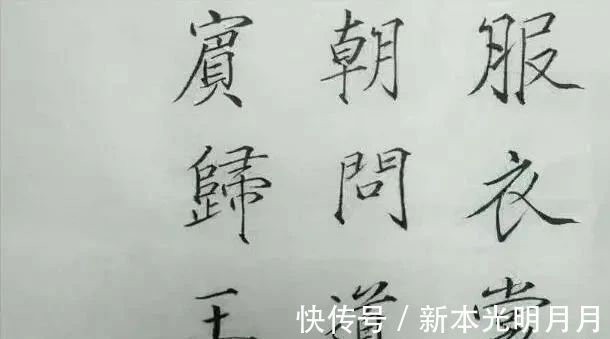 服衣裳
朝問道
賓歸王
快传号/新本光明月月